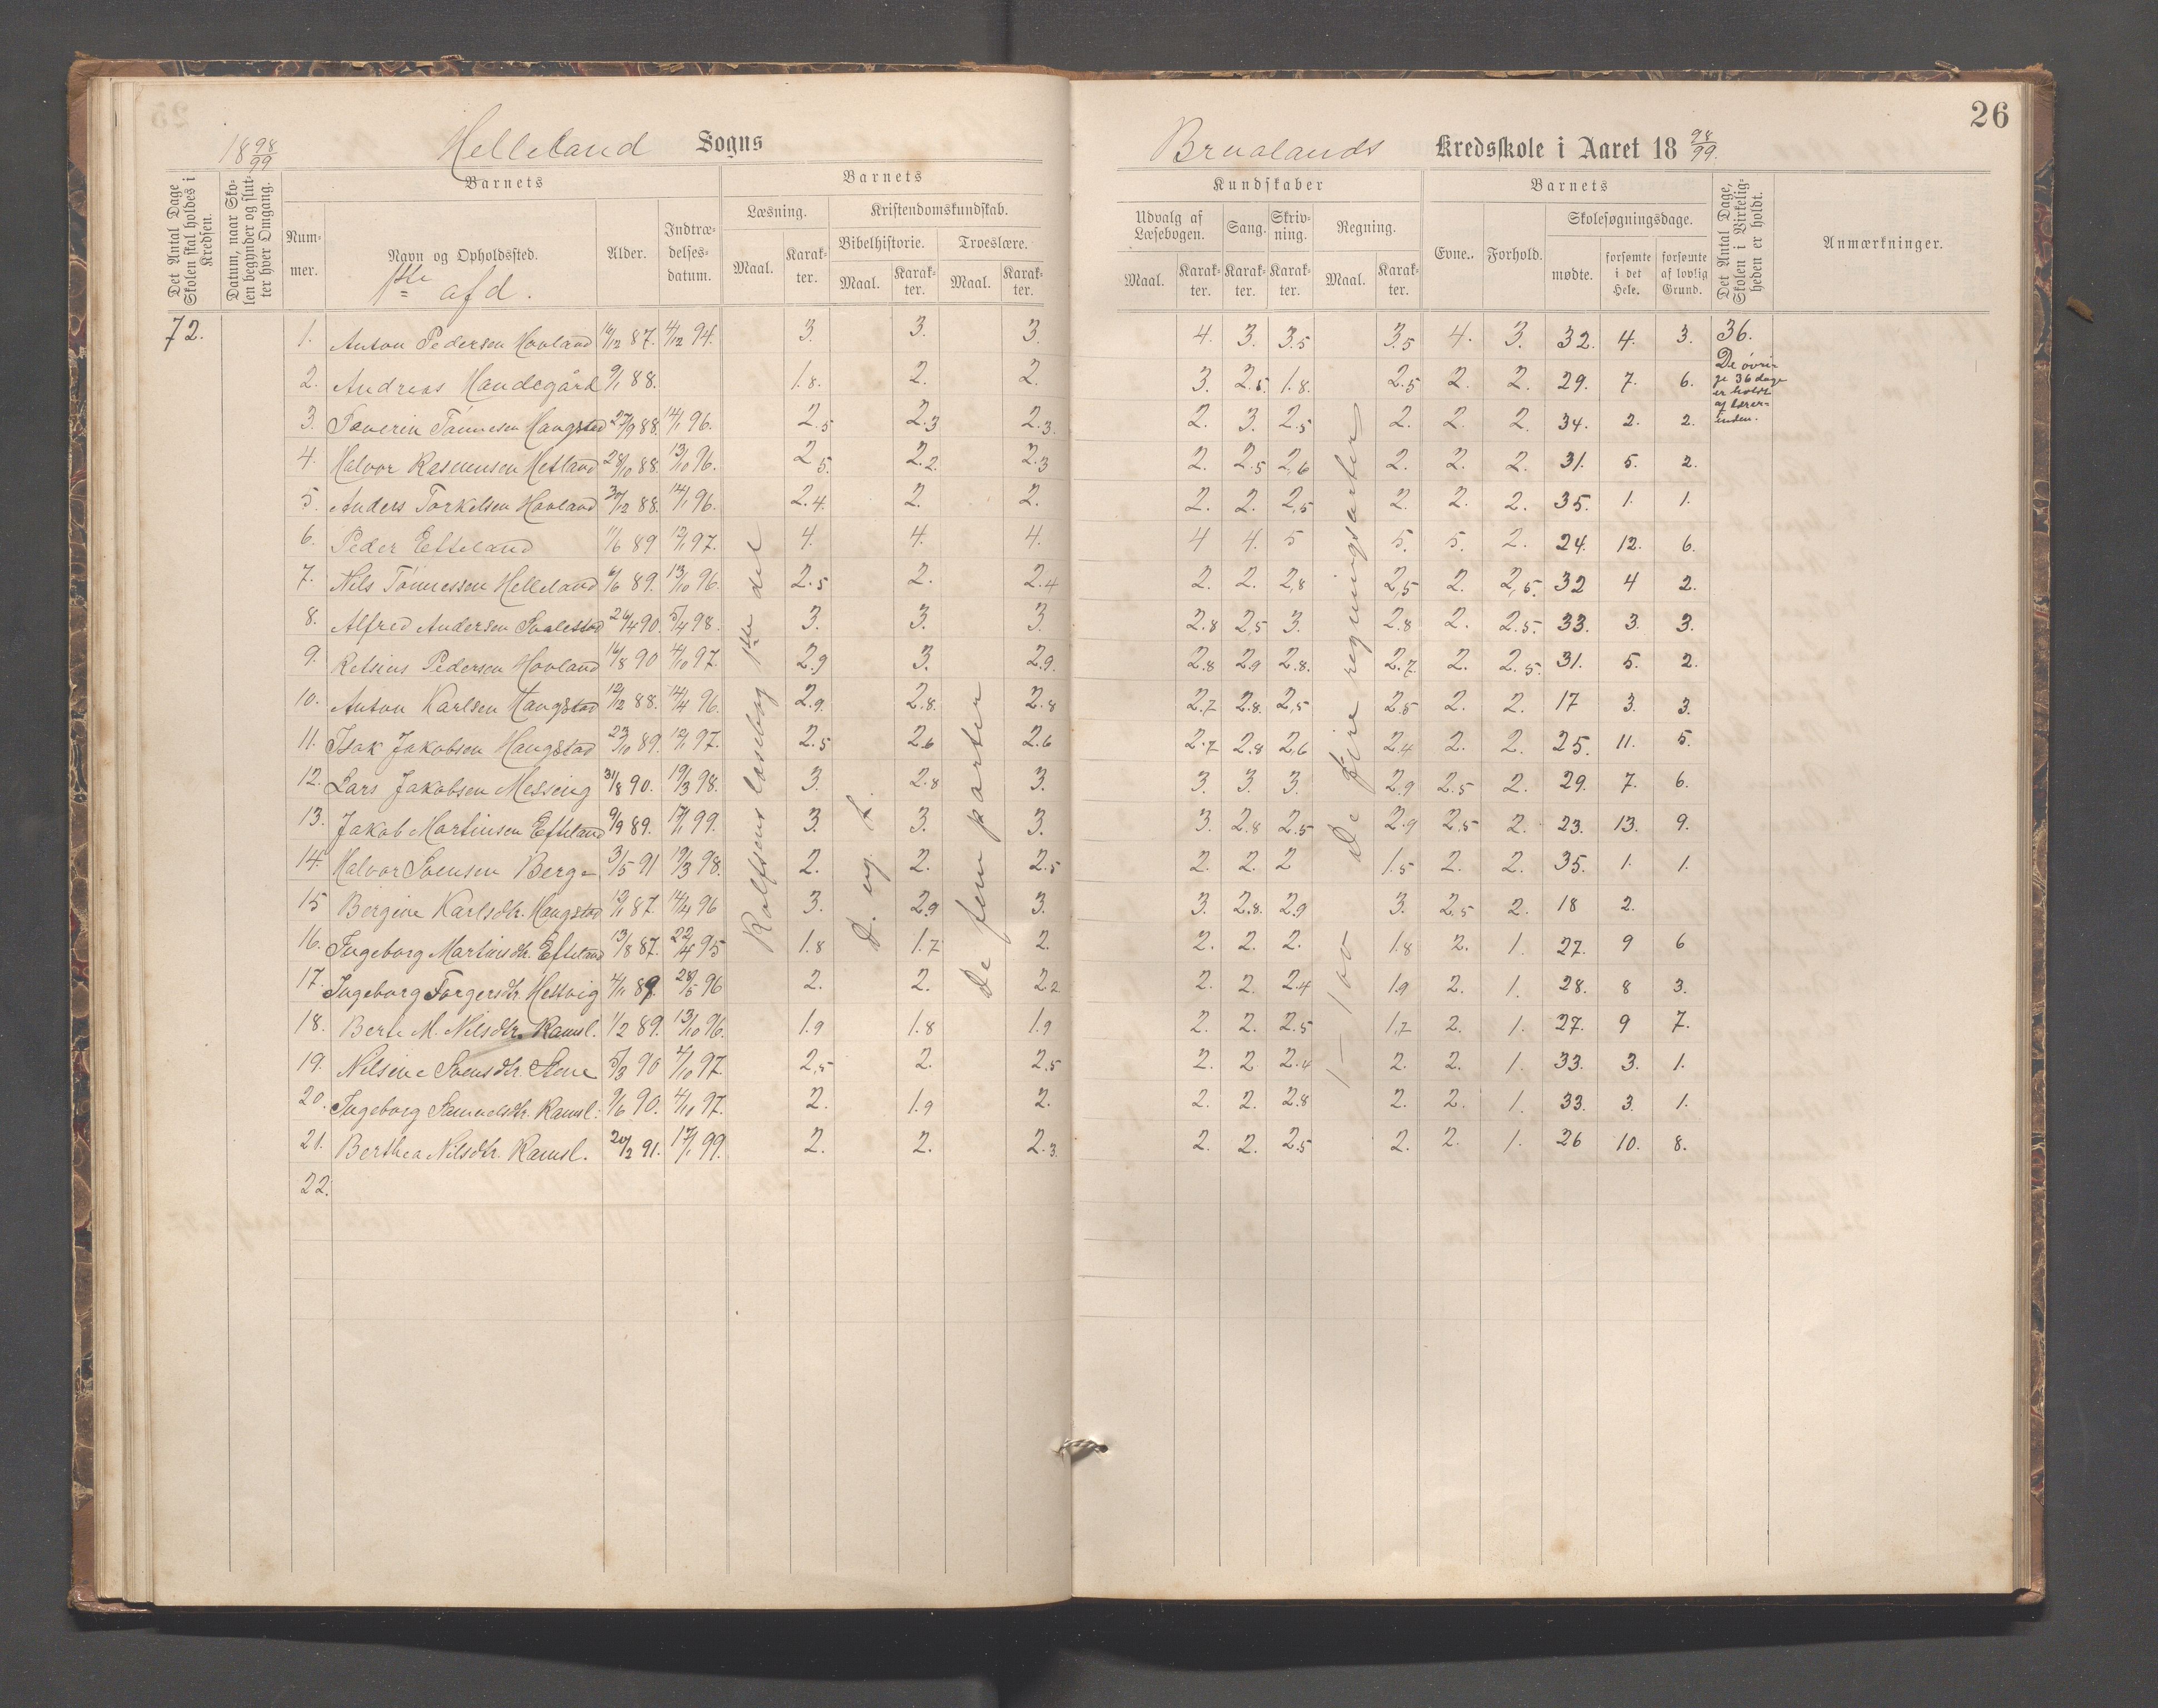 26
18 98/99 Helleland Sogns Brualands Kredsskole i Aaret 18 98/99.
Det Antal Dage Skolen skal holdes i Kredsen.
Datum, naar Skolen begynder og slutter hver Omgang.
Barnets
Barnets
Kundskaber
Barnets
Det Antal Dage, Skolen i Virkeligheden er holdt.
Anmærkninger.
Nummer.
Navn og Opholdssted.
Alder.
Indtrædelsesdatum.
Læsning.
Kristendomskundskab.
Bibelhistorie.
Troeslære.
Udvalg af Læsebogen.
Sang.
Skrivning.
Regning.
Evne.
Forhold.
Skolesøgningsdage.
Maal. Karakter. Maal. Karakter. Maal. Karakter. Maal. Karakter. Karakter. Karakter. Maal. Karakter. mødte. forsømte i det Hele. forsømte af lovlig Grund.
1ste afd.
72. 1. Anton Pedersen Hovland 16/12 87. 4/12 94. 3. 3. 3. 4. 3. 3.5 3.5 4. 3. 32. 4. 3. 36.
De øvrige 36 dage er holdt af lærerinden.
2. Andreas Handegård 9/1 88. 1.8. 2. 2. 3. 2.5 1.8. 2.5 2. 2. 29. 7. 6.
3. Severin Tønnesen Haugstad 27/9 88. 14/1 96. 2.5 2.3 2.3. 2. 3. 2.5 2. 2. 2. 34. 2. 2.
4. Halvor Rasmussen Hetland 28/10 88. 13/10 96. 2.5. 2.2. 2.3 2. 2.5 2,6 2. 2. 2. 31. 5. 2.
5. Anders Torkelsen Hovland 30/12 88. 14/1 96. 2.4. 2. 2. 2. 2. 2,5 2. 2. 2. 35. 1. 1.
6. Peder Efteland 11/6 89 12/1 97. 4. 4. 4. 4 4. 5 5. 5. 2. 24. 12. 6.
7. Nils Tønnessen Helleland 6/6 89. 13/10 96. 2.5 2. 2.4 2. 2. 2,8 2,5 2. 2,5. 32 4 2.
8. Alfred Andersen Svalestad 26/4 90. 5/4 98. 3. 3. 3. 2.8 2,5 3. 2.8 2. 2.5. 33. 3. 3.
9. Retsius Pedersen Hovland 16/8 90 4/10 97. 2.9 3. 2.9. 2.8 2.9 2.8. 2.7. 2. 2.5 31. 5. 2.
10. Anton Karlsen Haugstad 12/12 88. 14/4 96. 2.9. 2.8. 2.8 2.7 2.8. 2,5 2.5 2. 2. 17 3. 3.
11. Isak Jakobsen Haugstad 23/10 89. 12/1 97. 2.5 2.6 2.6 2.7 2.8 2,6 2.4 2. 2. 25. 11. 5.
12. Lars Jakobsen Messing 31/8 90. 19/3 98. 3. 2.8 3. 3. 3. 3. 2.9 2.5 2. 29. 7. 6.
13. Jakob Martinsen Efteland 9/9 89. 17/1 99. 3. 3. 3. 3. 2.8 2.5 2.9 2,5 2. 23. 13. 9.
14. Halvor Svensen Berge 3/5 91 19/3 98. 2. 2. 2.5 2. 2. 2 1.5 2. 2. 35. 1. 1.
15 Bergine Karlsdtr. Haugstad 12/1 87. 14/4 96 3. 2.9 3. 3. 2.8. 2.9 3. 2,5 2. 18 2.
16. Ingeborg Martinsdtr. Efteland 13/8 87. 22/4 95 1.8 1.7 2. 2. 2. 2. 1.8 2. 1. 27. 9 6
17. Ingeborg Torgersdtr. Hestvig 4/11 89. 28/5 96 2. 2. 2.2 2. 2. 2.4 1.9 2. 1. 28. 8 3.
18. Berte M. Nilsdtr. Ramsl. 1/2 89. 13/10 96. 1.9 1.8 1.9 2. 2. 2.5 1.7 2. 1. 27. 9 7.
19. Nilsine Svensdtr. Stene 5/3 90 4/10 97. 2,5 2. 2.5 2. 2 2.4 2. 2. 1. 33. 3. 1.
20. Ingeborg Samuelsdtr. Ramsl. 9/6 90. 4/10 97. 2. 1.9 2. 2. 2. 2.8 2. 2. 1. 33. 3. 1.
21. Berthea Nilsdtr. Ramsl. 20/2 91. 17/1 99. 2. 2. 2.3. 2. 2. 2.5 2. 2. 1. 26 10. 8.
22.
Rolfsens læsebog 1ste del
De fem parter
De fire regningsarter
1 – 100